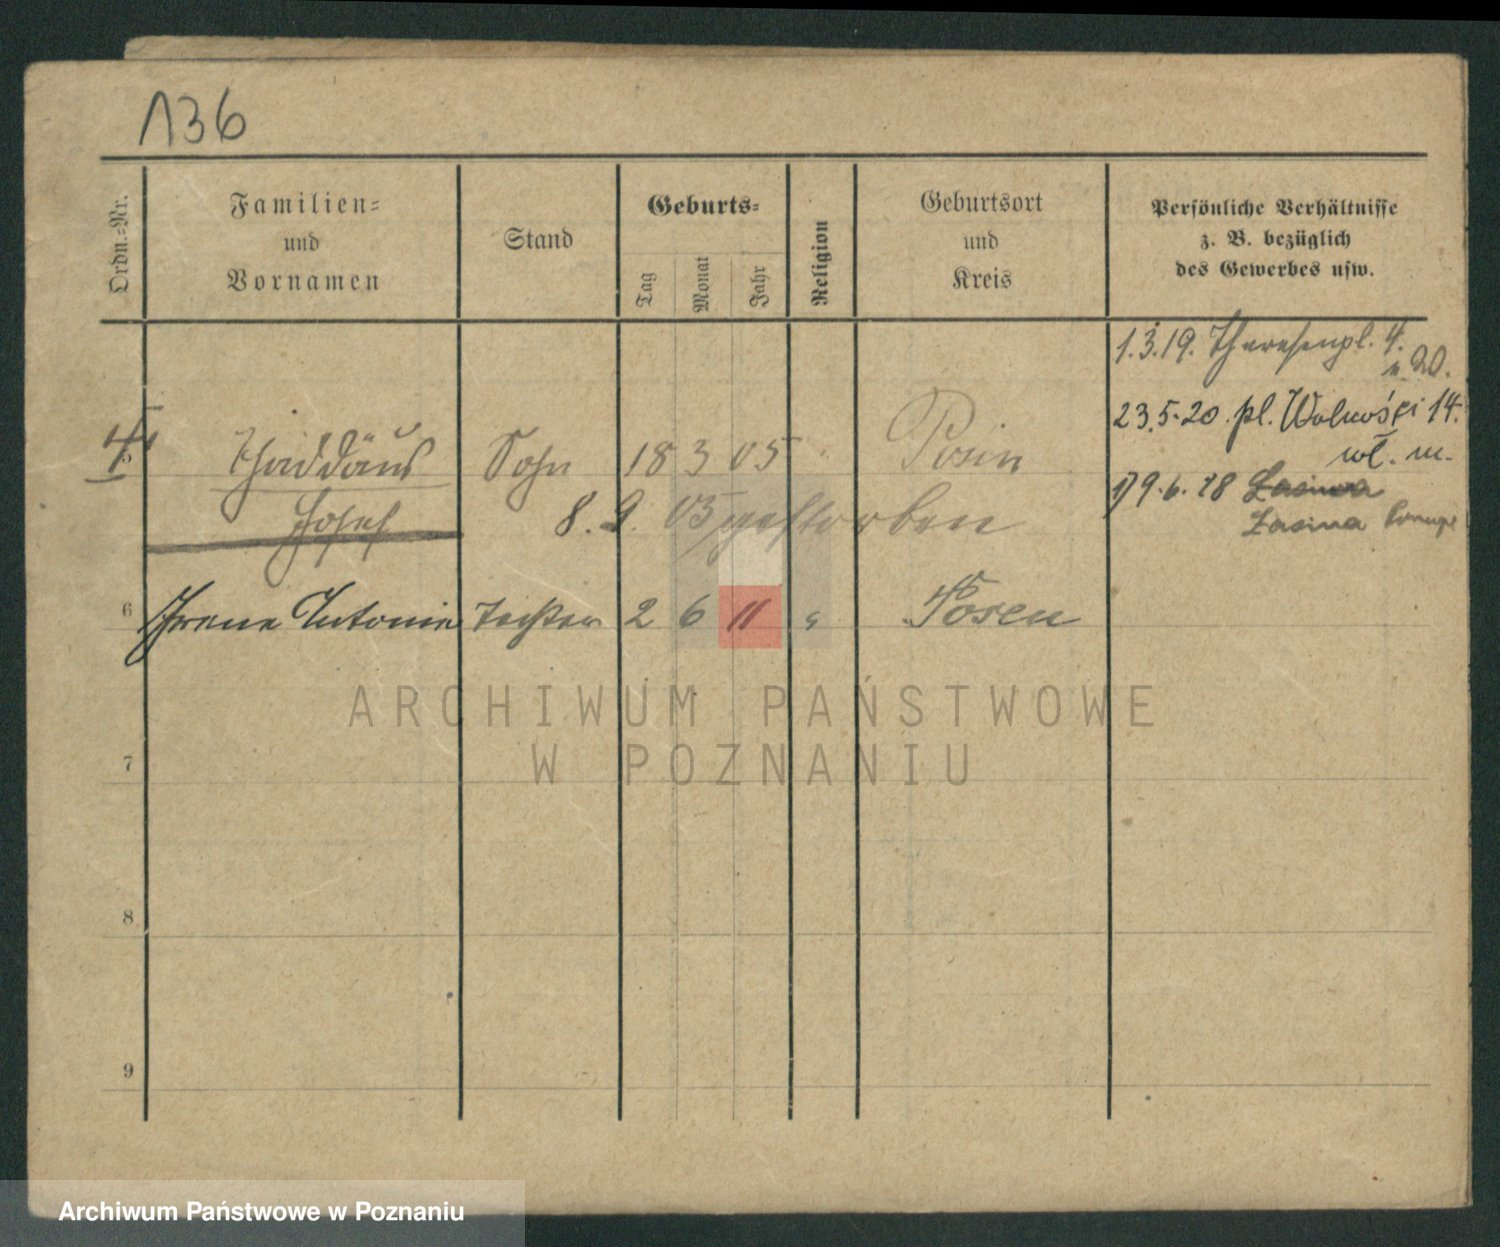 136
Ordn.-Nr.
Familien-
und
Vornamen
Stand
Geburts-
Tag
Monat
Jahr
Religion
Geburtsort
und
Kreis
Persönliche Verhältnisse
z. B. bezüglich
des Gewerbes usw.
1.3.19. Theresenpl. 4.
23.5.20. pl. Wolności 14.
wł. m.
4 Thaddäus Sohn 18 3 05 " Posen
9.6.28 Łacina
Josef 8. 9. 05 gestorben
Łacina
6 Irene Antonie Tochter 2 6 11 " Posen
ARCHIWUM PAŃSTWOWE
W POZNANIU
7
8
9
Archiwum Państwowe w Poznaniu